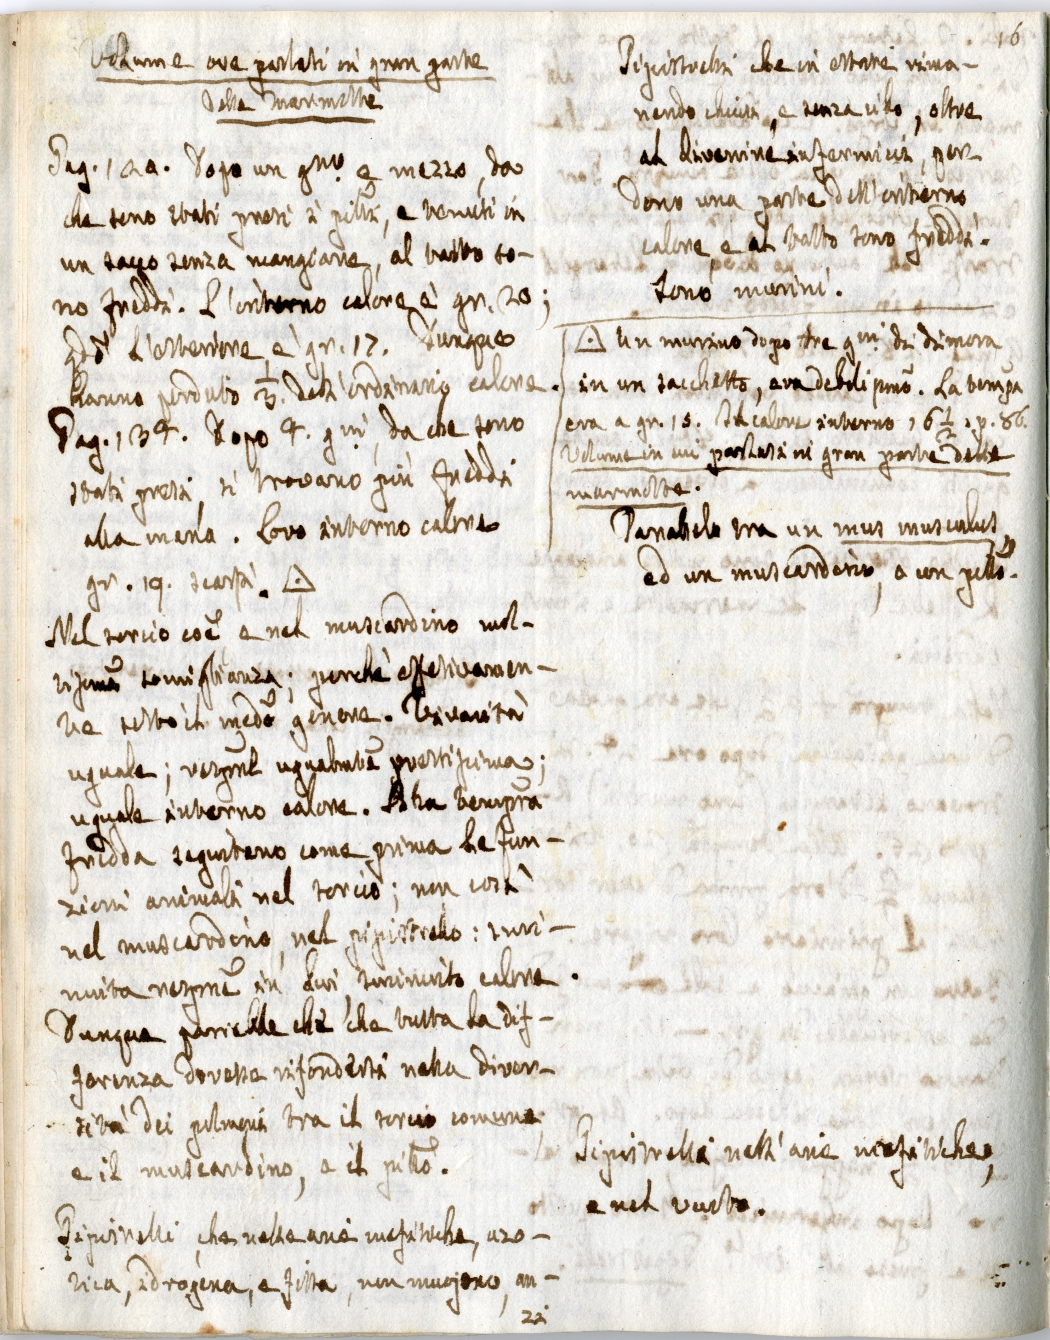 16
Volume ove parlasi in gran parte
delle marmotte
Pag. 122. Dopo un gno. e mezzo, da
che sono stati presi i pilli, e tenuti in
un sacco senza mangiare, al tatto so-
no freddi. L'interno calore è gr. 20;
qdo l'esteriore è gr. 17. Dunque
hanno perduto dell'ordinario calore.
Pag. 134. Dopo 4. gni, da che sono
stati presi, si trovano più freddi
alla mano. Loro interno calore
gr. 19. scarsi.
Nel sorcio coe, e nel muscardino mol-
tissima somiglianza; perchè effettivamen-
te sotto il medo genere. Vivacità
uguale; respne ugualmte prestissima;
uguale interno calore. Alla tempra
fredda seguitano come prima le fun-
zioni animali nel sorcio; non così
nel muscardino, nel pipistrello: smi-
nuita respne in lui sminuito calore.
Dunque parrebbe che tutta la dif-
ferenza dovesse rifondersi nella diver-
sità dei polmoni tra il sorcio comune
e il muscardino, o il pillo.
Pipistrelli, che nelle arie mefitiche, azo-
tica, idrogena, e fissa, non muojono, an-
22
Pipistrelli che in estate rima-
nendo chiusi, e senza cibo, oltre
al divenire infermicci, per-
dono una parte dell'interno
calore e al tatto sono freddi.
Sono murini.
Un murino dopo tre gni di dimora
in un sacchetto, era debolissmo. La tempra
era a gr. 15. Il calore interno 16 1/2. p. 86.
Volume in cui parlasi in gran parte delle
marmotte.
Paralello tra un mus musculus,
ed un muscardino, o un pillo.
Pipistrelli nell'arie mefitiche,
e nel vuoto.